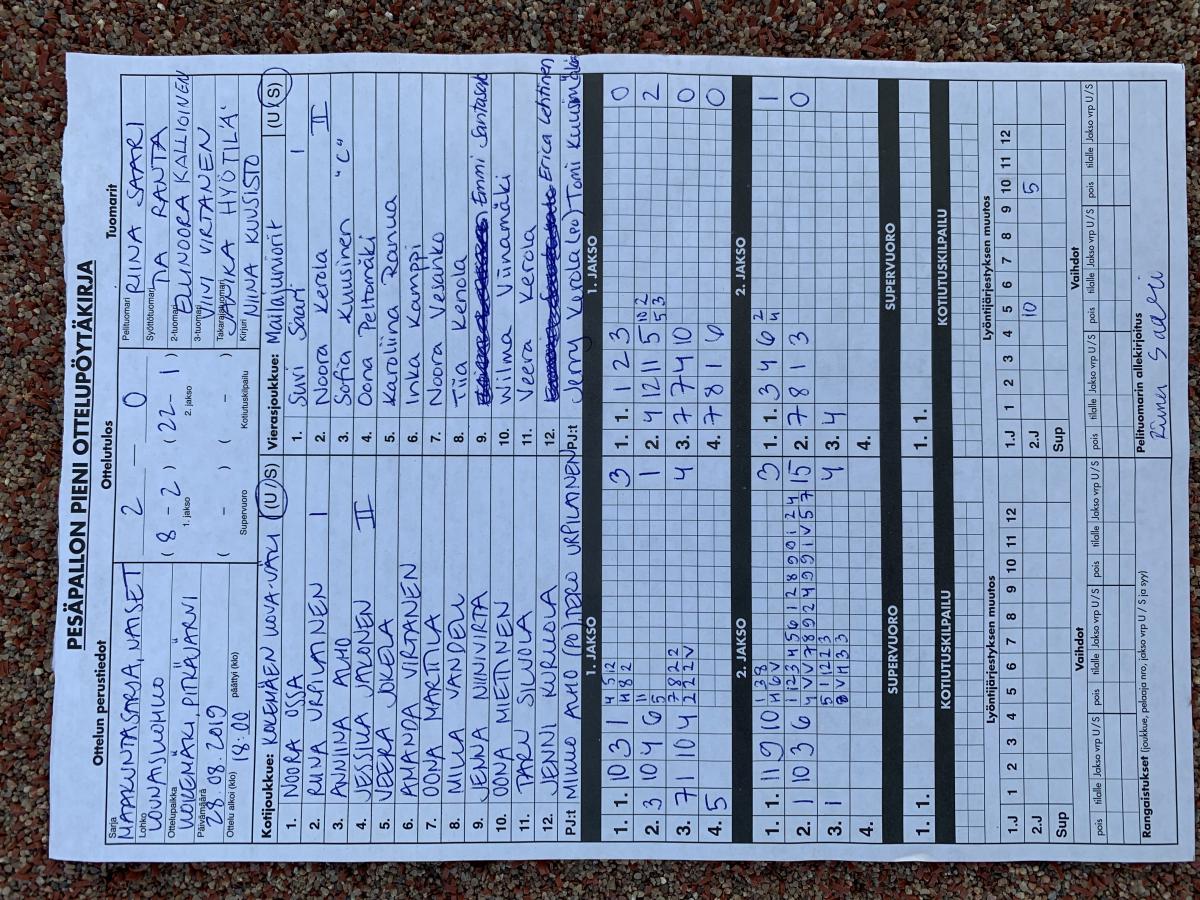 PESÄPALLON PIENI OTTELUPÖYTÄKIRJA
Ottelun perustiedot
Sarja
MAAKUNTASARJA, NAISET
Lohko
LOUNAISLOHKO
Ottelupaikka
KOKEMÄKI, PITKÄJÄRVI
Päivämäärä
28.08.2019
Ottelu alkoi (klo) 18:00 päättyi (klo)
Ottelutulos
2 – 0
( 8 - 2 ) ( 22 - 1 )
1. jakso 2. jakso
( - ) ( - )
Supervuoro Kotiutuskilpailu
Tuomarit
Pelituomari RIINA SAARI
Syöttötuomari TIA RANTA
2-tuomari ELLINOORA KALLIOINEN
3-tuomari VIIVI VIRTANEN
Takarajatuomari "HYÖTILÄ"
Kirjuri NIINA KUUSISTO
Kotijoukkue: KOKEMÄEN KOVA-VÄKI (U/S)
1. NOORA OSSA
2. RIINA URPILAINEN I
3. ANNIINA AHO
4. JESSIKA JALONEN II
5. VEERA JOKELA
6. AMANDA VIRTANEN
7. OONA MARTTILA
8. MILLA VANDELL
9. JENNA NIINIVIRTA
10. OONA MIETTINEN
11. TARU SILVOLA
12. JENNI KURKOLA
PJ:t MIKKO AHO (PJ), TERO URPILAINEN
Vierasjoukkue: Mallajuniorit (U/S)
1. Suvi Saari I
2. Noora Kerola II
3. Sofia Kuusinen "C"
4. Oona Peltomäki
5. Karoliina Ranua
6. Inka Kamppi
7. Noora Vesanko
8. Tiia Kenola
9. Emmi Santasalo
10. Wilma Viinamäki
11. Veera Kerola
12. Erica Lehtinen
PJ:t Jerry Kerola (PJ) Tomi Kuusimäki
1. JAKSO
1. 1. 10 3 1 3
2. 3 10 4 6 1
3. 7 1 10 4 4
4. 5
1. JAKSO
1. 1. 1 2 3 0
2. 4 12 11 5 2
3. 7 7 4 10 0
4. 7 8 1 6 0
2. JAKSO
1. 1. 11 9 10 3
2. 1 10 3 6 15
3. 1 4
4.
2. JAKSO
1. 1. 3 4 6 1
2. 7 8 1 3 0
3. 4
4.
SUPERVUORO
1. 1.
SUPERVUORO
1. 1.
KOTIUTUSKILPAILU
KOTIUTUSKILPAILU
Lyöntijärjestyksen muutos
1 2 3 4 5 6 7 8 9 10 11 12
1.J
2.J
Sup
Lyöntijärjestyksen muutos
1 2 3 4 5 6 7 8 9 10 11 12
1.J
2.J 10 5
Sup
Vaihdot
pois tilalle Jakso vrp U/S pois tilalle Jakso vrp U/S pois tilalle Jakso vrp U/S
Vaihdot
pois tilalle Jakso vrp U/S pois tilalle Jakso vrp U/S pois tilalle Jakso vrp U/S
Rangaistukset (joukkue, pelaaja nro, jakso vrp U / S ja syy)
Pelituomarin allekirjoitus
Riina Saari